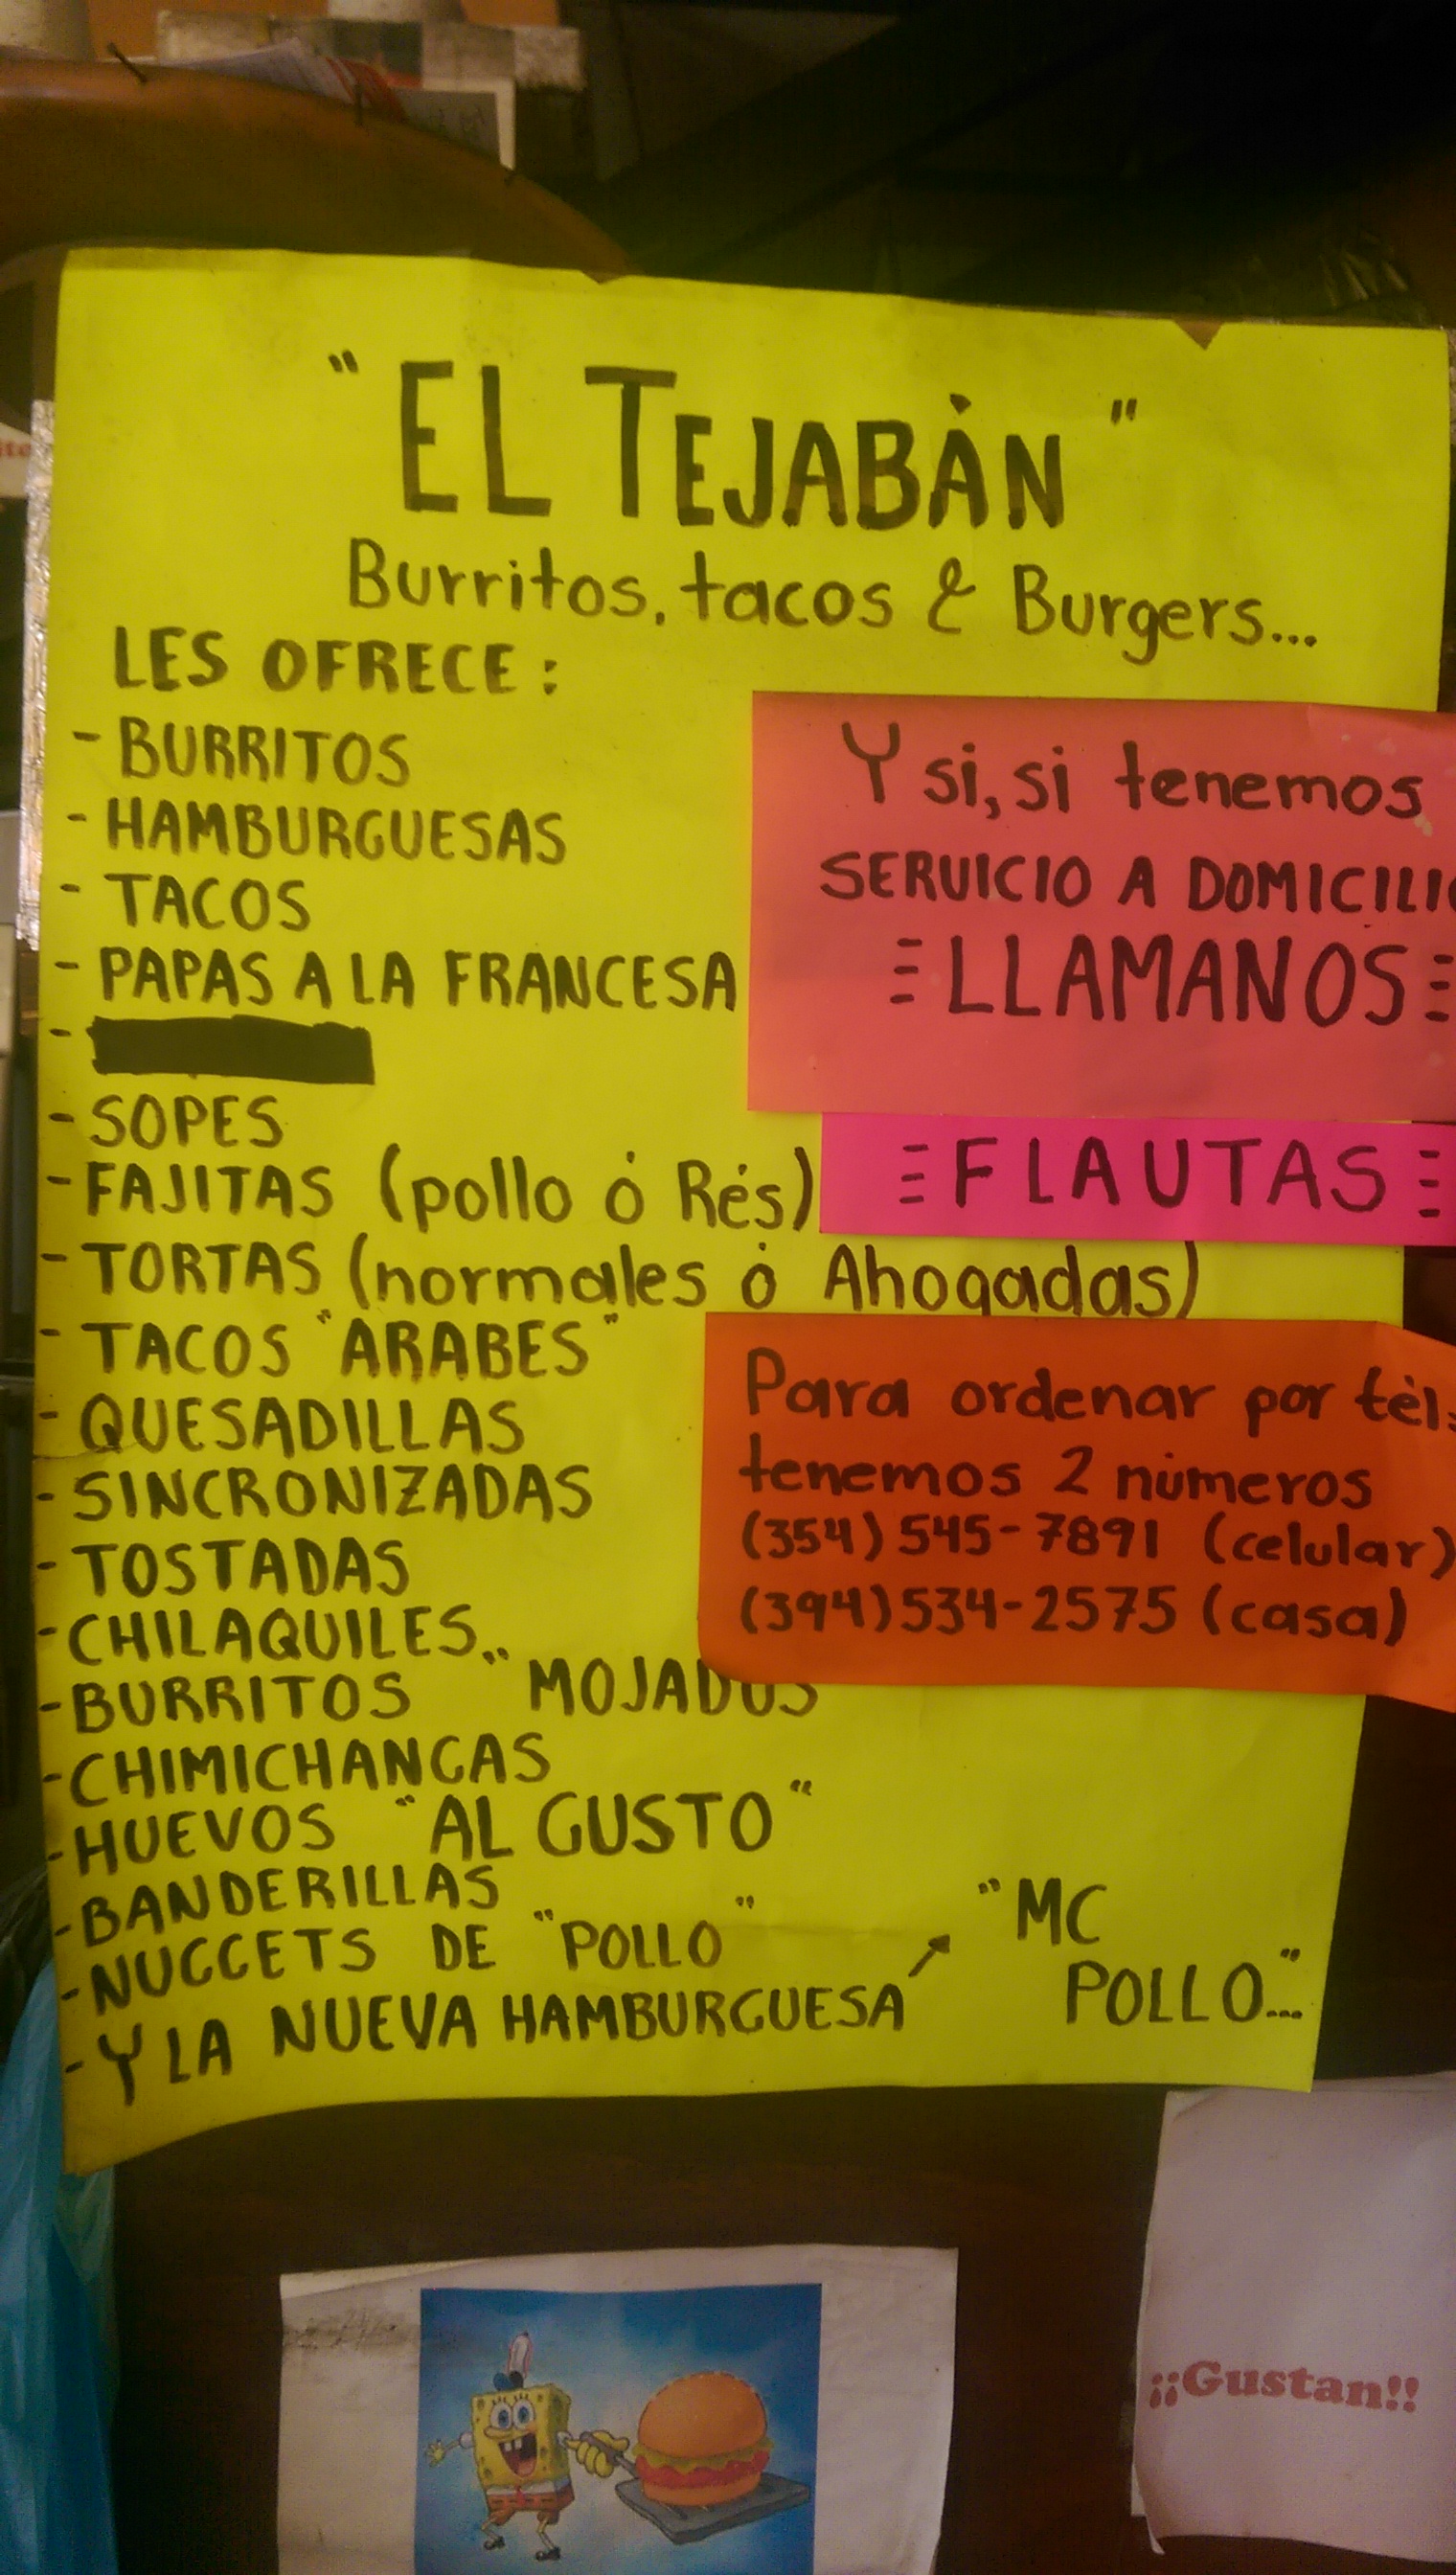 "EL TEJABÀN"
Burritos, tacos & Burgers...
LES OFRECE:
- BURRITOS
- HAMBURGUESAS
- TACOS
- PAPAS A LA FRANCESA
-
- SOPES
- FAJITAS (pollo ó Rés)
- TORTAS (normales ó Ahogadas)
- TACOS "ARABES"
- QUESADILLAS
- SINCRONIZADAS
- TOSTADAS
- CHILAQUILES
- BURRITOS "MOJADOS
- CHIMICHANGAS
- HUEVOS "AL GUSTO"
- BANDERILLAS
- NUGGETS DE "POLLO"
- Y LA NUEVA HAMBURGUESA
"MC
POLLO..."
Y si, si tenemos
SERVICIO A DOMICILIO
LLAMANOS
FLAUTAS
Para ordenar por tél.
tenemos 2 números
(354) 545-7891 (celular)
(394) 534-2575 (casa)
¡¡Gustan!!